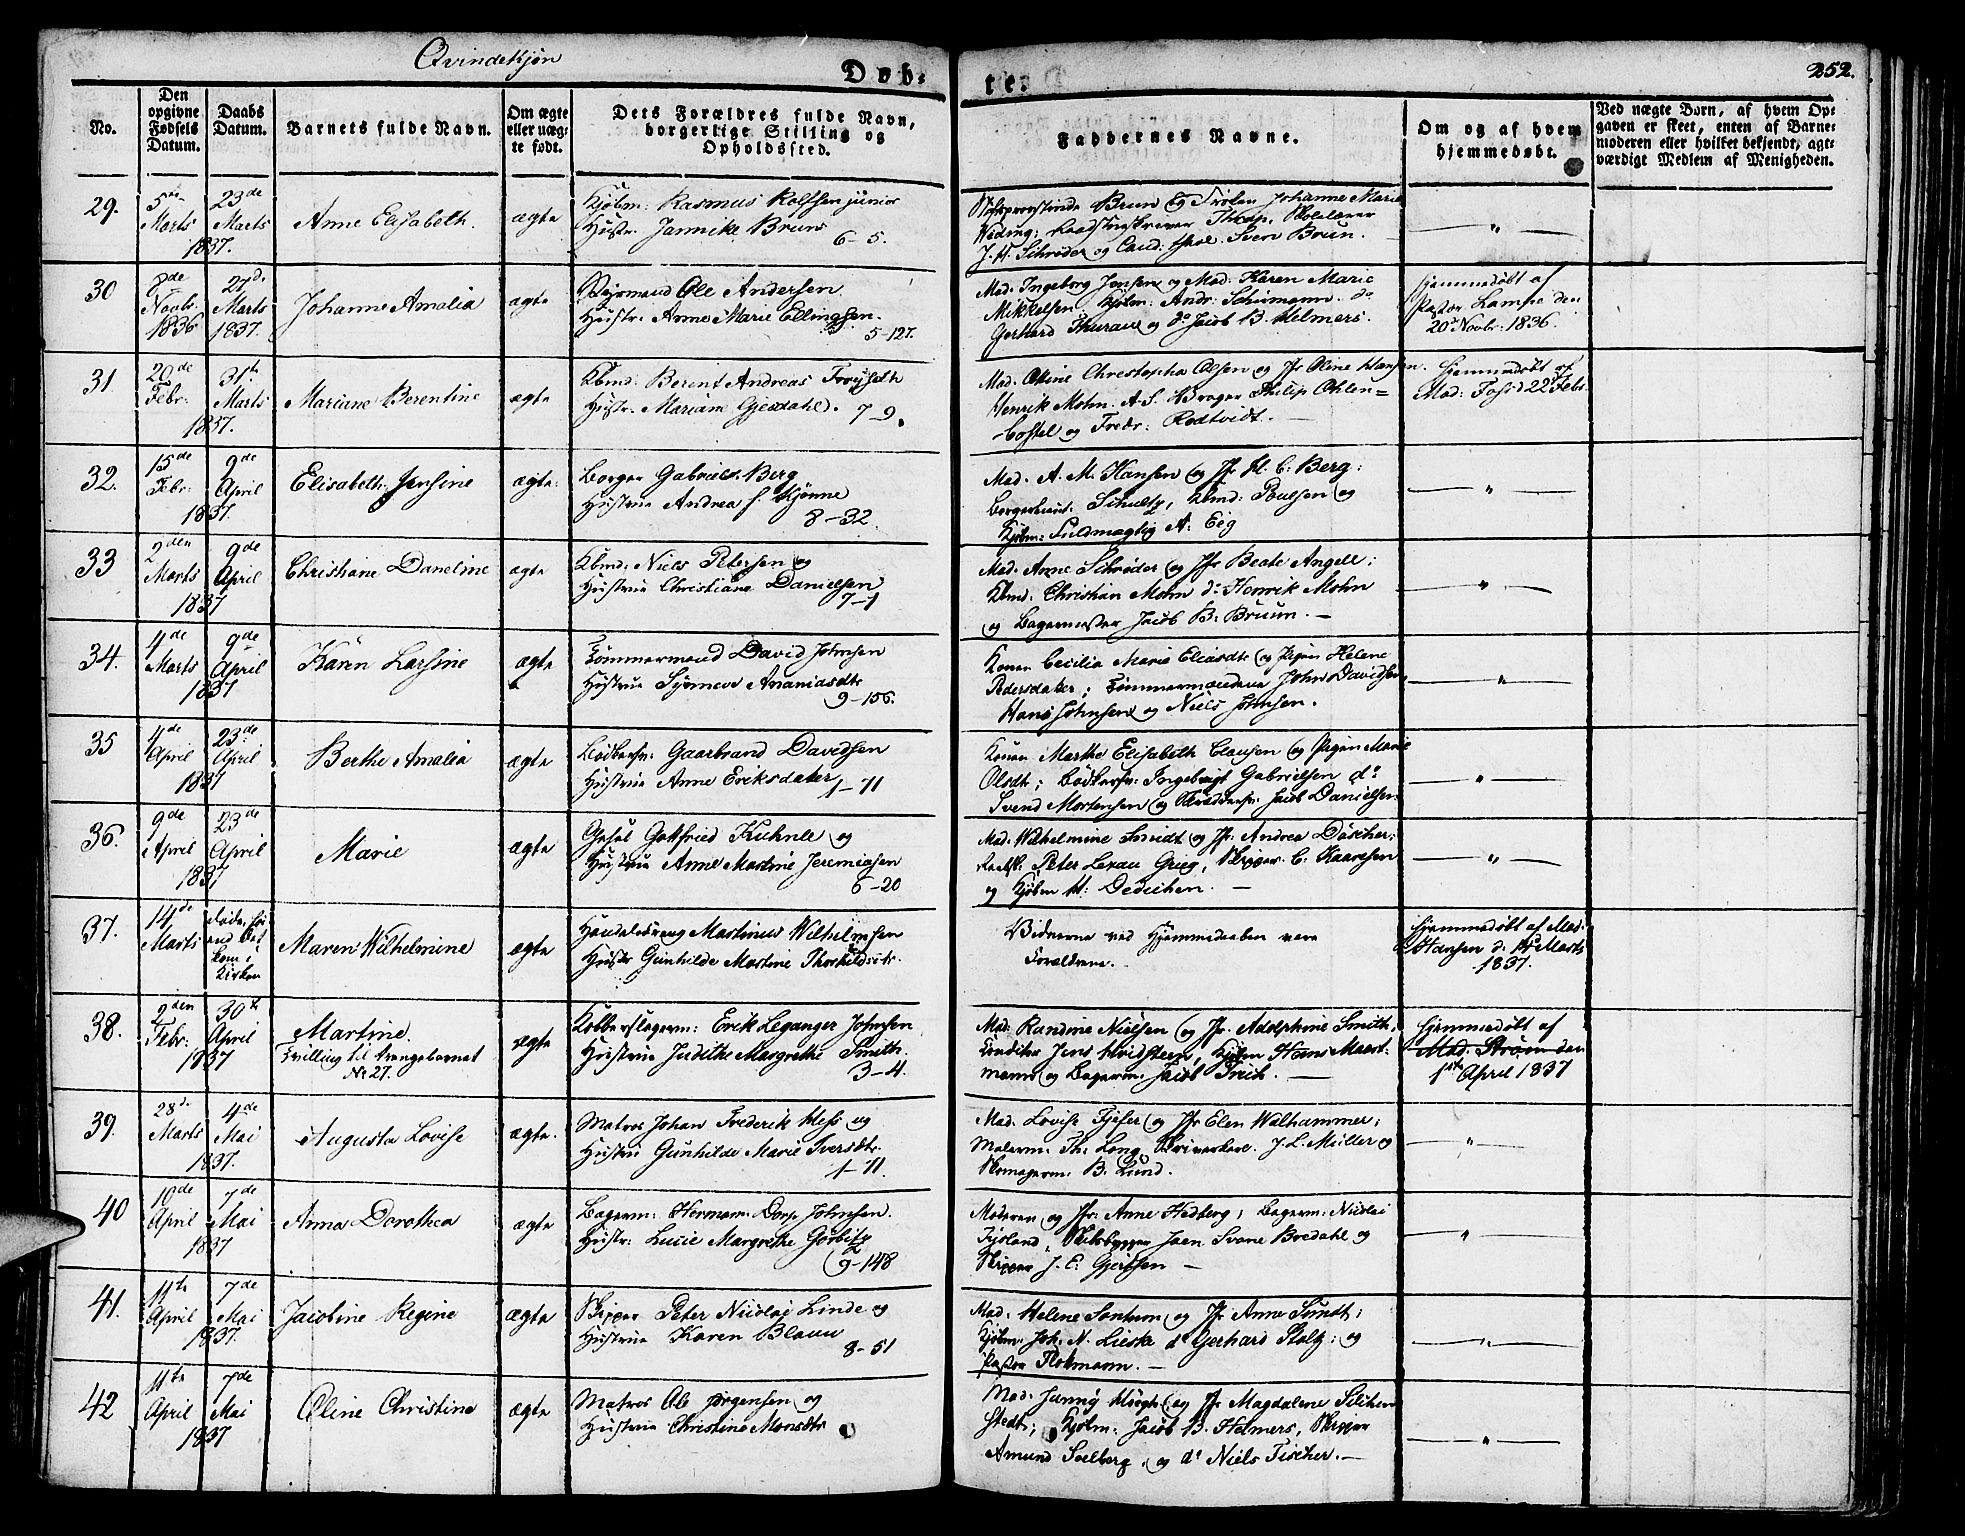 Qvindekjøn
Døb-
te.
252.
No.
Den opgivne Fødsels Datum.
Daabs Datum.
Barnets fulde Navn.
Om ægte eller uægte født.
Dets Forældres fulde Navn, borgerlige Stilling og Opholdssted.
Faddernes Navne.
Om og af hvem hjemmedøbt.
Ved uægte Børn, af hvem Opgaven er skeet, enten af Barnemoderen eller hvilket bekjendt, agtværdigt Medlem af Menigheden.
29.
5te Marts
23de Marts
1837.
Anne Elisabeth.
ægte
Kjøbm: Rasmus Rolfsen junior
Hustr. Jannike Bruns
6-5.
Brun og Frøken Johanne Marie
J. H. Schrøder og Cand: theol. Sven Brun.
30
8de Novbr. 1836
27de Marts 1837.
Johanne Amalia
ægte
Ole Andersen
Hustr. Anne Marie Ellingsen.
5-127.
Mad. Ingeborg Jensen og Mad. Karen Marie
Mikkelsen. Kjøbm: Andr: Schumann. do
Gerhard Thurau og do Jacob B. Helmers.
Hjemmedøbt af
Pastor Lampe den
20de Novbr. 1836.
31.
20de Febr:
31te Marts
1837.
Mariane Berentine
ægte
Kbmd: Berent Andreas
Hustr. Mariane Gjesdahl.
7-9.
Mad. Christopha Olsen og Jfr Oline Hansen.
Henrik Mohn. A. S. Philip Ohlen=
og Fredr:
Hjemmedøbt af
Mad: 22de Febr.
32.
15de Febr:
9de April
1837.
Elisabeth Jensine
ægte.
Borger Gabriel Berg
Hustrue Andrea f.
8-32.
Mad. A. M. Hansen og Jfr H. C. Berg:
Schultz, Kbmd: Poulsen og
Kjøbm: Fuldmægtig A. Eeg
33
2den Marts
9de April
1837
Christiane Daneline
ægte
Kbmd: Niels Petersen og
Hustrue Christiane Danielsen
7-1
Mad. Anne Schrøder og Jfr Beate Angell:
Kbmd: Christian Mohn do Henrik Mohn
og Bagermester Jacob B. Bruun.
34.
4de Marts
9de April
1837
Karen Larsine
ægte
Tømmermand David Johnsen
Hustrue Synneve Ananiasdtr
9-156.
Konen Cecilia Marie Eliasdtr og Pigen Helene
Pedersdatter; Tømmermændene John Davidsen,
Hans Johnsen og Niels Johnsen.
35
4de April
23de April
1837
Berthe Amalia
ægte
Bødkersv: Gaarbrand Davidsen
Hustrue Anne Eriksdatter
1-71
Konen Marthe Elisabeth Clausen og Pigen Marie
Olsdtr; Bødkersv: Ingebrigt Gabrielsen do
Svend Mortensen og Skrædersv. Jacob Danielsen
36.
9de April
23de April
1837
Marie
ægte
Gottfried Kuhnle og
Hustrue Anne Martine Jeremiasen
6-20
Mad. Wilhelmine Smidt og Jfr. Andrea Döscher;
Peter Lexau Grieg, Skipper C. Kaaresen
og Kjøbm H. Dedichen.
37.
14de Marts
Kirken
Maren Wilhelmine
ægte
Martinus Wilhelmsen
Hustr Gunhilde Martine Thorkildsdtr.
Vidnerne ved Hjemmedaaben vare
Forældrene.
Hjemmedøbt af Mad.
Hansen d. Marts
1837.
38.
2den Febr:
30te April
1837
Martine.
Tvilling til Drengebarnet
No 27.
ægte
Kobberslagerm: Erik Leganger Johnsen
Hustrue Judithe Margrethe Smith.
3-4.
Mad: Randine Nielsen og Jfr. Adolphine Smith,
Conditor Jens Hvidsteen, Kjøbm Hans
og Bagerm. Jacob
Hjemmedøbt af
Mad. Strøm den
1ste April 1837
39.
28de Marts
4de Mai
1837.
Augusta Lovise
ægte.
Matros Johan Frederik og
Hustrue Gunhilde Marie Iversdtr.
1-71.
Mad. Lovise og Jfr Elen Walhammer;
Malerm. Th. Long. J. L. Müller og
Skomagerm. B. Lund.
40
10de April
7de Mai
1837
Anna Dorothea
ægte
Bagerm: Herman Dorp Johnsen.
Hustr: Lucie Margrethe Görbitz
9-148
Moderen og Jfr: Anne Hedberg; Bagerm: Nicolai
Svane Bredahl og
Skipper J. E. Gjertsen
41.
11te April
7de Mai
1837.
Jacobine Regine
ægte
Skipper Peter Nicolai Linde og
Hustrue Karen Blaun
8-51
Mad: Helene Sontum og Jfr. Anne Sundt;
Kjøbm: Joh. N. do Gerhard Stoltz; og
Pastor Flotmann.
42
11te April
7de Mai
1837
Oline Christine
ægte
Matros Ole Jørgensen og
Hustrue Christine Monsdtr
Mad. og Jfr Magdalene
Kjøbm: Jacob B. Helmers, Skipper
Amund Solberg, og do Niels Fischer.